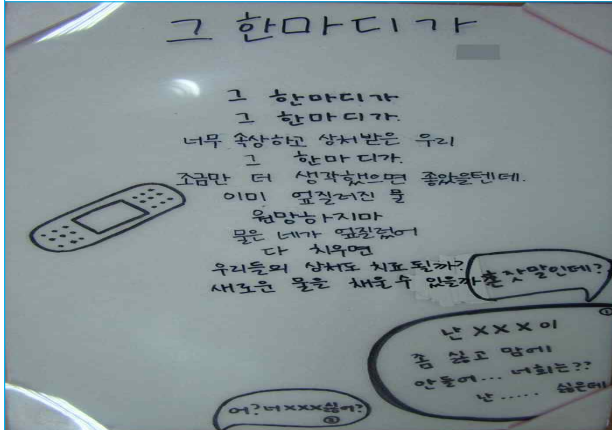 그 한마디가
그 한마디가
그 한마디가.
너무 속상하고 상처받은 우리
그 한마디가.
조금만 더 생각했으면 좋았을텐데.
이미 엎질러진 물
원망하지마
물은 네가 엎질렀어
다 치우면
우리들의 상처도 치료될까?
새로운 물을 채울 수 있을까
혼잣말인데?
①
난 XXX이
좀 싫고 맘에
안들어... 너희는??
난..... 싫은데
어? 너 XXX싫어?
②